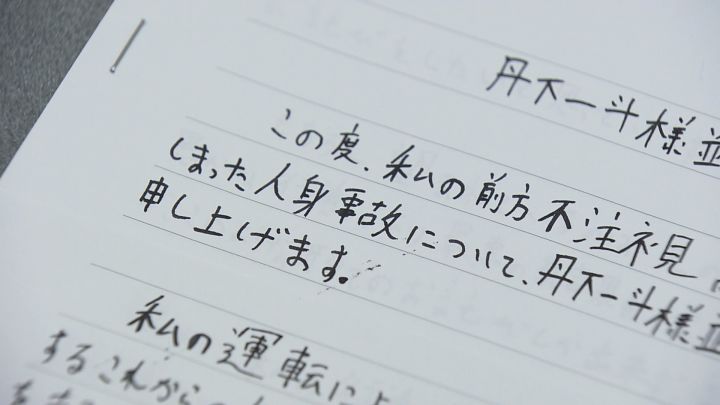 丹下一斗様並
この度、私の前方不注視
しまった人身事故について、丹下一斗様並
申し上げます。
私の運転に
するこれからの